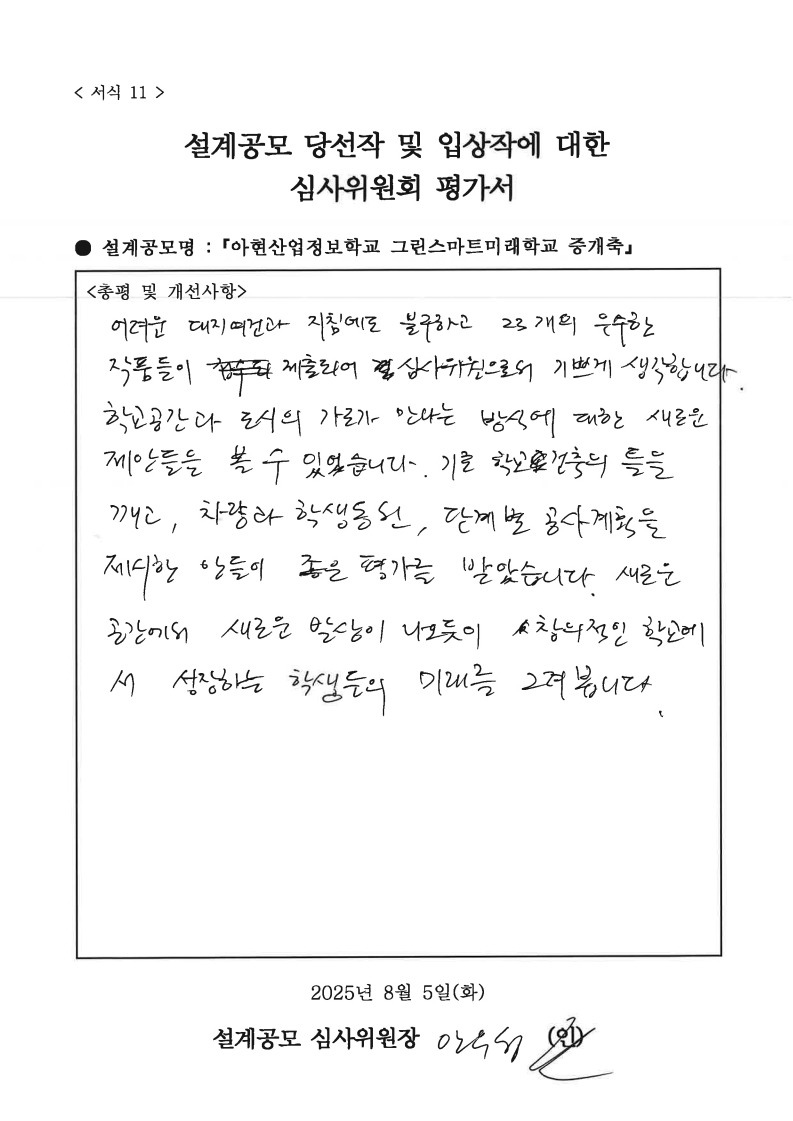 < 서식 11 >
설계공모 당선작 및 입상작에 대한
심사위원회 평가서
● 설계공모명 : 『아현산업정보학교 그린스마트미래학교 증개축』
<총평 및 개선사항>
어려운 대지여건과 지침에도 불구하고 23개의 우수한
작품들이 제출되어 심사위원으로서 기쁘게 생각합니다.
학교공간과 도시의 가로가 만나는 방식에 대한 새로운
제안들을 볼 수 있었습니다. 기존 학교건축의 틀을
깨고, 차량과 학생동선, 단계별 공사계획을
제시한 안들이 좋은 평가를 받았습니다. 새로운
공간에서 새로운 발상이 나오듯이 창의적인 학교에
서 성장하는 학생들의 미래를 그려봅니다.
2025년 8월 5일(화)
설계공모 심사위원장 (인)